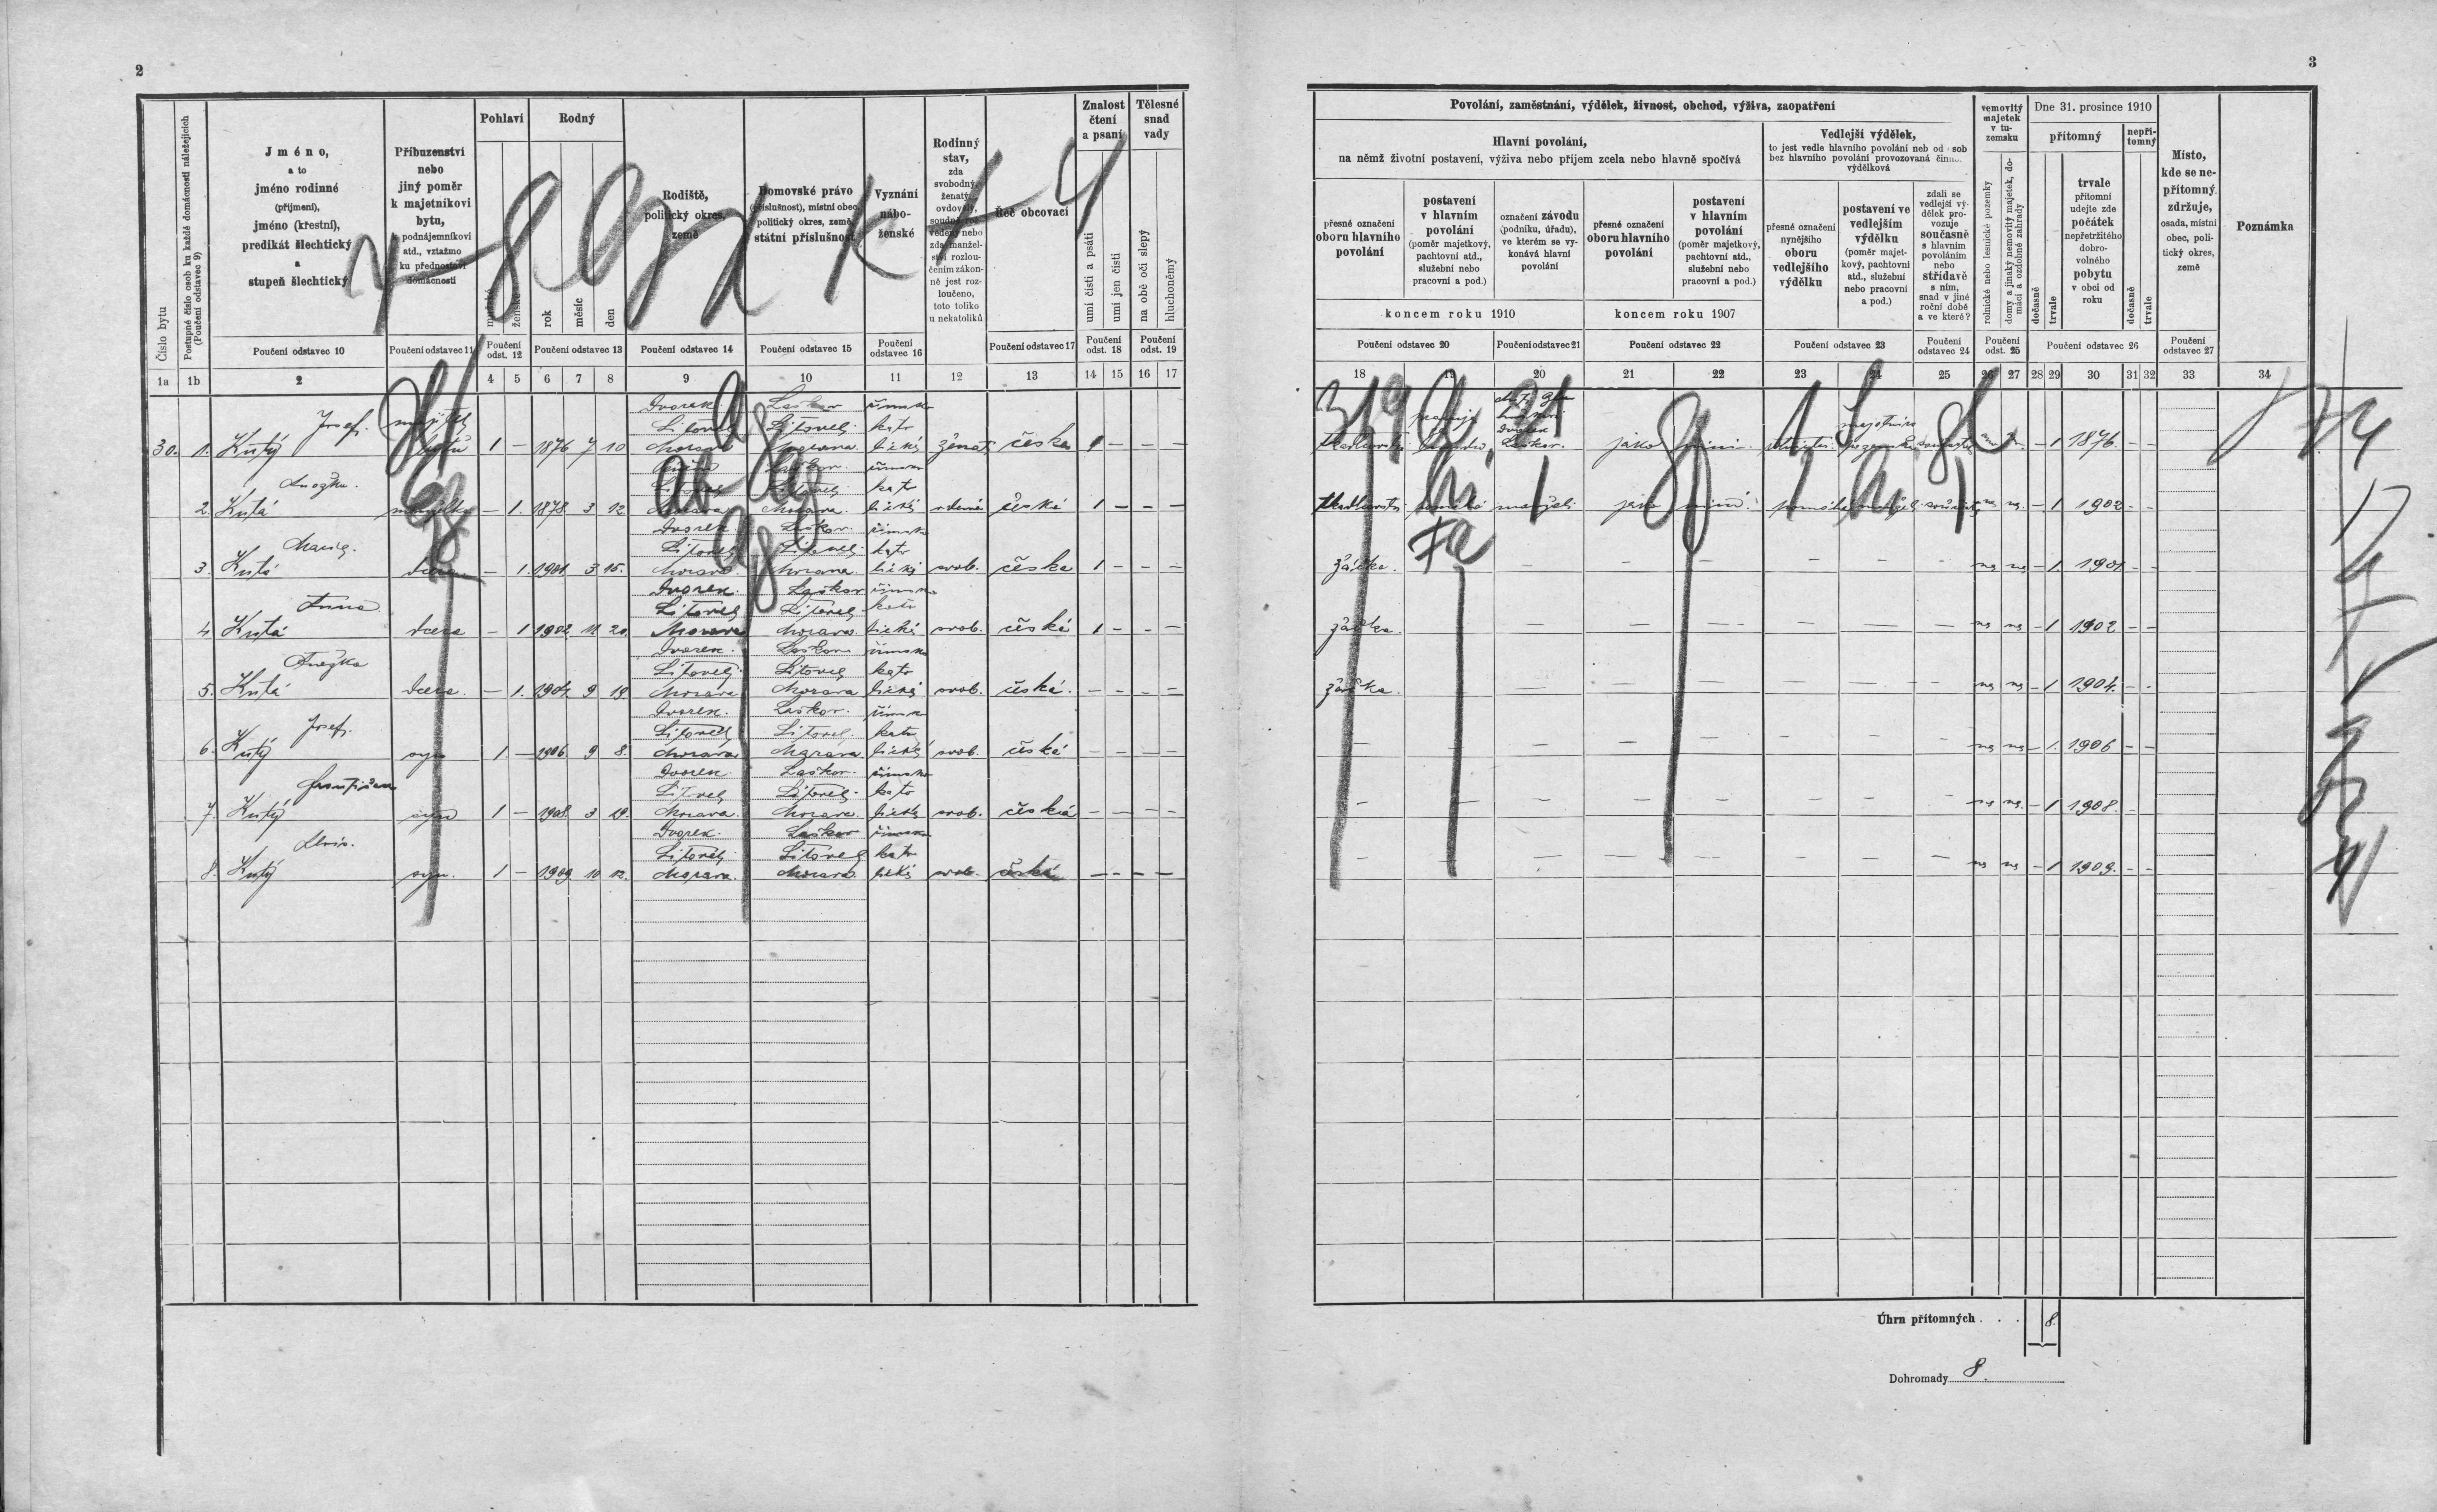 2
3
Číslo bytu
Postupné číslo osob ku každé domácnosti náležejících
(Poučení odstavec 9)
Jméno,
a to
jméno rodinné
(příjmení),
jméno (křestní),
predikát šlechtický
a
stupeň šlechtický
Příbuzenství
nebo
jiný poměr
k majetníkovi
bytu,
podnájemníkovi
atd., vztažmo
ku přednostovi
domácnosti
Pohlaví
mužské
ženské
Rodný
rok
měsíc
den
Rodiště,
politický okres,
země
Domovské právo
(příslušnost), místní obec,
politický okres, země,
státní příslušnost
Vyznání
nábo-
ženské
Rodinný
stav,
zda
svobodný,
ženatý,
ovdovělý,
soudně roz-
vedený nebo
zda manžel-
ství rozlou-
čením zákon-
ně jest roz-
loučeno,
toto toliko
u nekatolíků
Řeč obcovací
Znalost
čtení
a psaní
umí čísti a psáti
umí jen čísti
Tělesné
snad
vady
na obě oči slepý
hluchoněmý
Poučení odstavec 10
Poučení odstavec 11
Poučení odst. 12
Poučení odstavec 13
Poučení odstavec 14
Poučení odstavec 15
Poučení odstavec 16
Poučení odstavec 17
Poučení odst. 18
Poučení odst. 19
1a 1b 2 4 5 6 7 8 9 10 11 12 13 14 15 16 17
Dvorek Laškov římsko
Josef. majitel Litovel Litovel kato
30. 1. Kutý bytu 1 - 1876 7 10 Morava Morava lický ženat česka 1 - - -
Laškov římsko
Anežka. Litovel kato
2. Kutá manželka - 1. 1878 3 12 Morava Morava lický vdaná česká 1 - - -
Dvorek Laškov římsko
Marie. Litovel Litovel kato
3. Kutá dcera - 1. 1901 3 15. Morava Morava lický svob. česka 1 - - -
Dvorek. Laškov římsko
Anna Litovel Litovel kato
4 Kutá dcera - 1 1902 11 20. Morava Morava lická svob. česká 1 - - -
Dvorek. Laškov římsko
Anežka Litovel Litovel kato
5. Kutá dcera. - 1. 1904 9 19. Morava Morava lická svob. česká. - - - -
Dvorek. Laškov. římsko
Josef. Litovel Litovel kato
6. Kutý syn 1. - 1906 9 8. Morava Morava lický svob. česká - - - -
Dvorek. Laškov. římsko
František Litovel Litovel kato
7. Kutý syn 1 - 1908. 3 29. Morava. Morava. lický svob. česká - - - -
Dvorek. Laškov římsko
Alois. Litovel Litovel kato
8. Kutý syn. 1 - 1909 10 12. Morava. Morava lický svob. česká - - - -
Povolání, zaměstnání, výdělek, živnost, obchod, výživa, zaopatření
Hlavní povolání,
na němž životní postavení, výživa nebo příjem zcela nebo hlavně spočívá
Vedlejší výdělek,
to jest vedle hlavního povolání neb od osob
bez hlavního povolání provozovaná činnost
výdělková
přesné označení
oboru hlavního
povolání
postavení
v hlavním
povolání
(poměr majetkový,
pachtovní atd.,
služební nebo
pracovní a pod.)
označení závodu
(podniku, úřadu),
ve kterém se vy-
konává hlavní
povolání
přesné označení
oboru hlavního
povolání
postavení
v hlavním
povolání
(poměr majetkový,
pachtovní atd.,
služební nebo
pracovní a pod.)
přesné označení
nynějšího
oboru
vedlejšího
výdělku
postavení ve
vedlejším
výdělku
(poměr majet-
kový, pachtovní
atd., služební
nebo pracovní
a pod.)
zdali se
vedlejší vý-
dělek pro-
vozuje
současně
s hlavním
povoláním
nebo
střídavě
s ním,
snad v jiné
roční době
a ve které?
koncem roku 1910
koncem roku 1907
nemovitý
majetek
v tu-
zemsku
rolnické nebo lesnické pozemky
domy a jinaký nemovitý majetek, do-
mácí a ozdobné zahrady
Dne 31. prosince 1910
přítomný
nepří-
tomný
dočasně
trvale
trvale
přítomní
udejte zde
počátek
nepřetržitého
dobro-
volného
pobytu
v obci od
roku
dočasně
trvale
Místo,
kde se ne-
přítomný
zdržuje,
osada, místní
obec, poli-
tický okres,
země
Poznámka
Poučení odstavec 20
Poučení odstavec 21
Poučení odstavec 22
Poučení odstavec 23
Poučení odstavec 24
Poučení odst. 25
Poučení odstavec 26
Poučení odstavec 27
18 19 20 21 22 23 24 25 26 27 28 29 30 31 32 33 34
Dvorek
Laškov. jako nyní - 1 1876. - -
pomáhá manželi jako nyní pomáhá manželi ne ne. - 1 1902 - -
žačka. - - - - ne ne - 1 1901 - -
žačka. - - - - - - ne ne - 1 1902 - -
žačka. - - - - - - ne ne - 1 1904. - -
- - - - - - - ne ne - 1. 1906 - -
- - - - - - - - ne ne. - 1 1908. -
- - - - - - - - ne ne - 1 1909. - -
Úhrn přítomných . . . 8.
Dohromady 8.